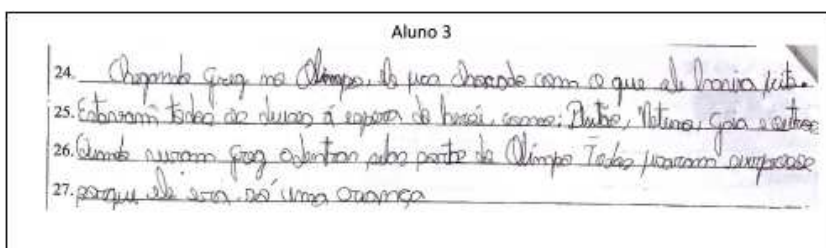 Aluno 3
24. Chegando Greg no Olimpo, ele fica chocado com o que ele havia feito.
25. Estavam todos os deuses á espera do herói, como: Plutão, Netuno, Gaia e outros
26. Quando viram Greg adentrar pelas porta do Olimpo Todos ficaram surpresos
27. porque ele era só uma criança